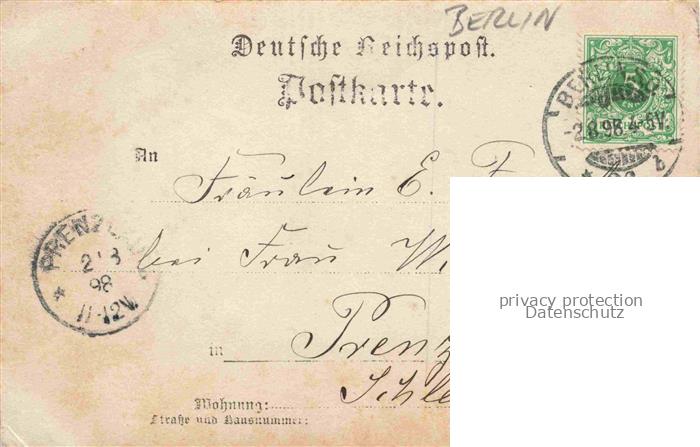 BERLIN
Deutsche Reichspost.
Postkarte.
An
Fräulein E. F
bei Frau W
in Prenz
Schle
Wohnung:
Straße und Hausnummer:
PRENZLAU
2/8
98
11-12V.
BERLIN
-2.8.98.4-5V.
privacy protection
Datenschutz